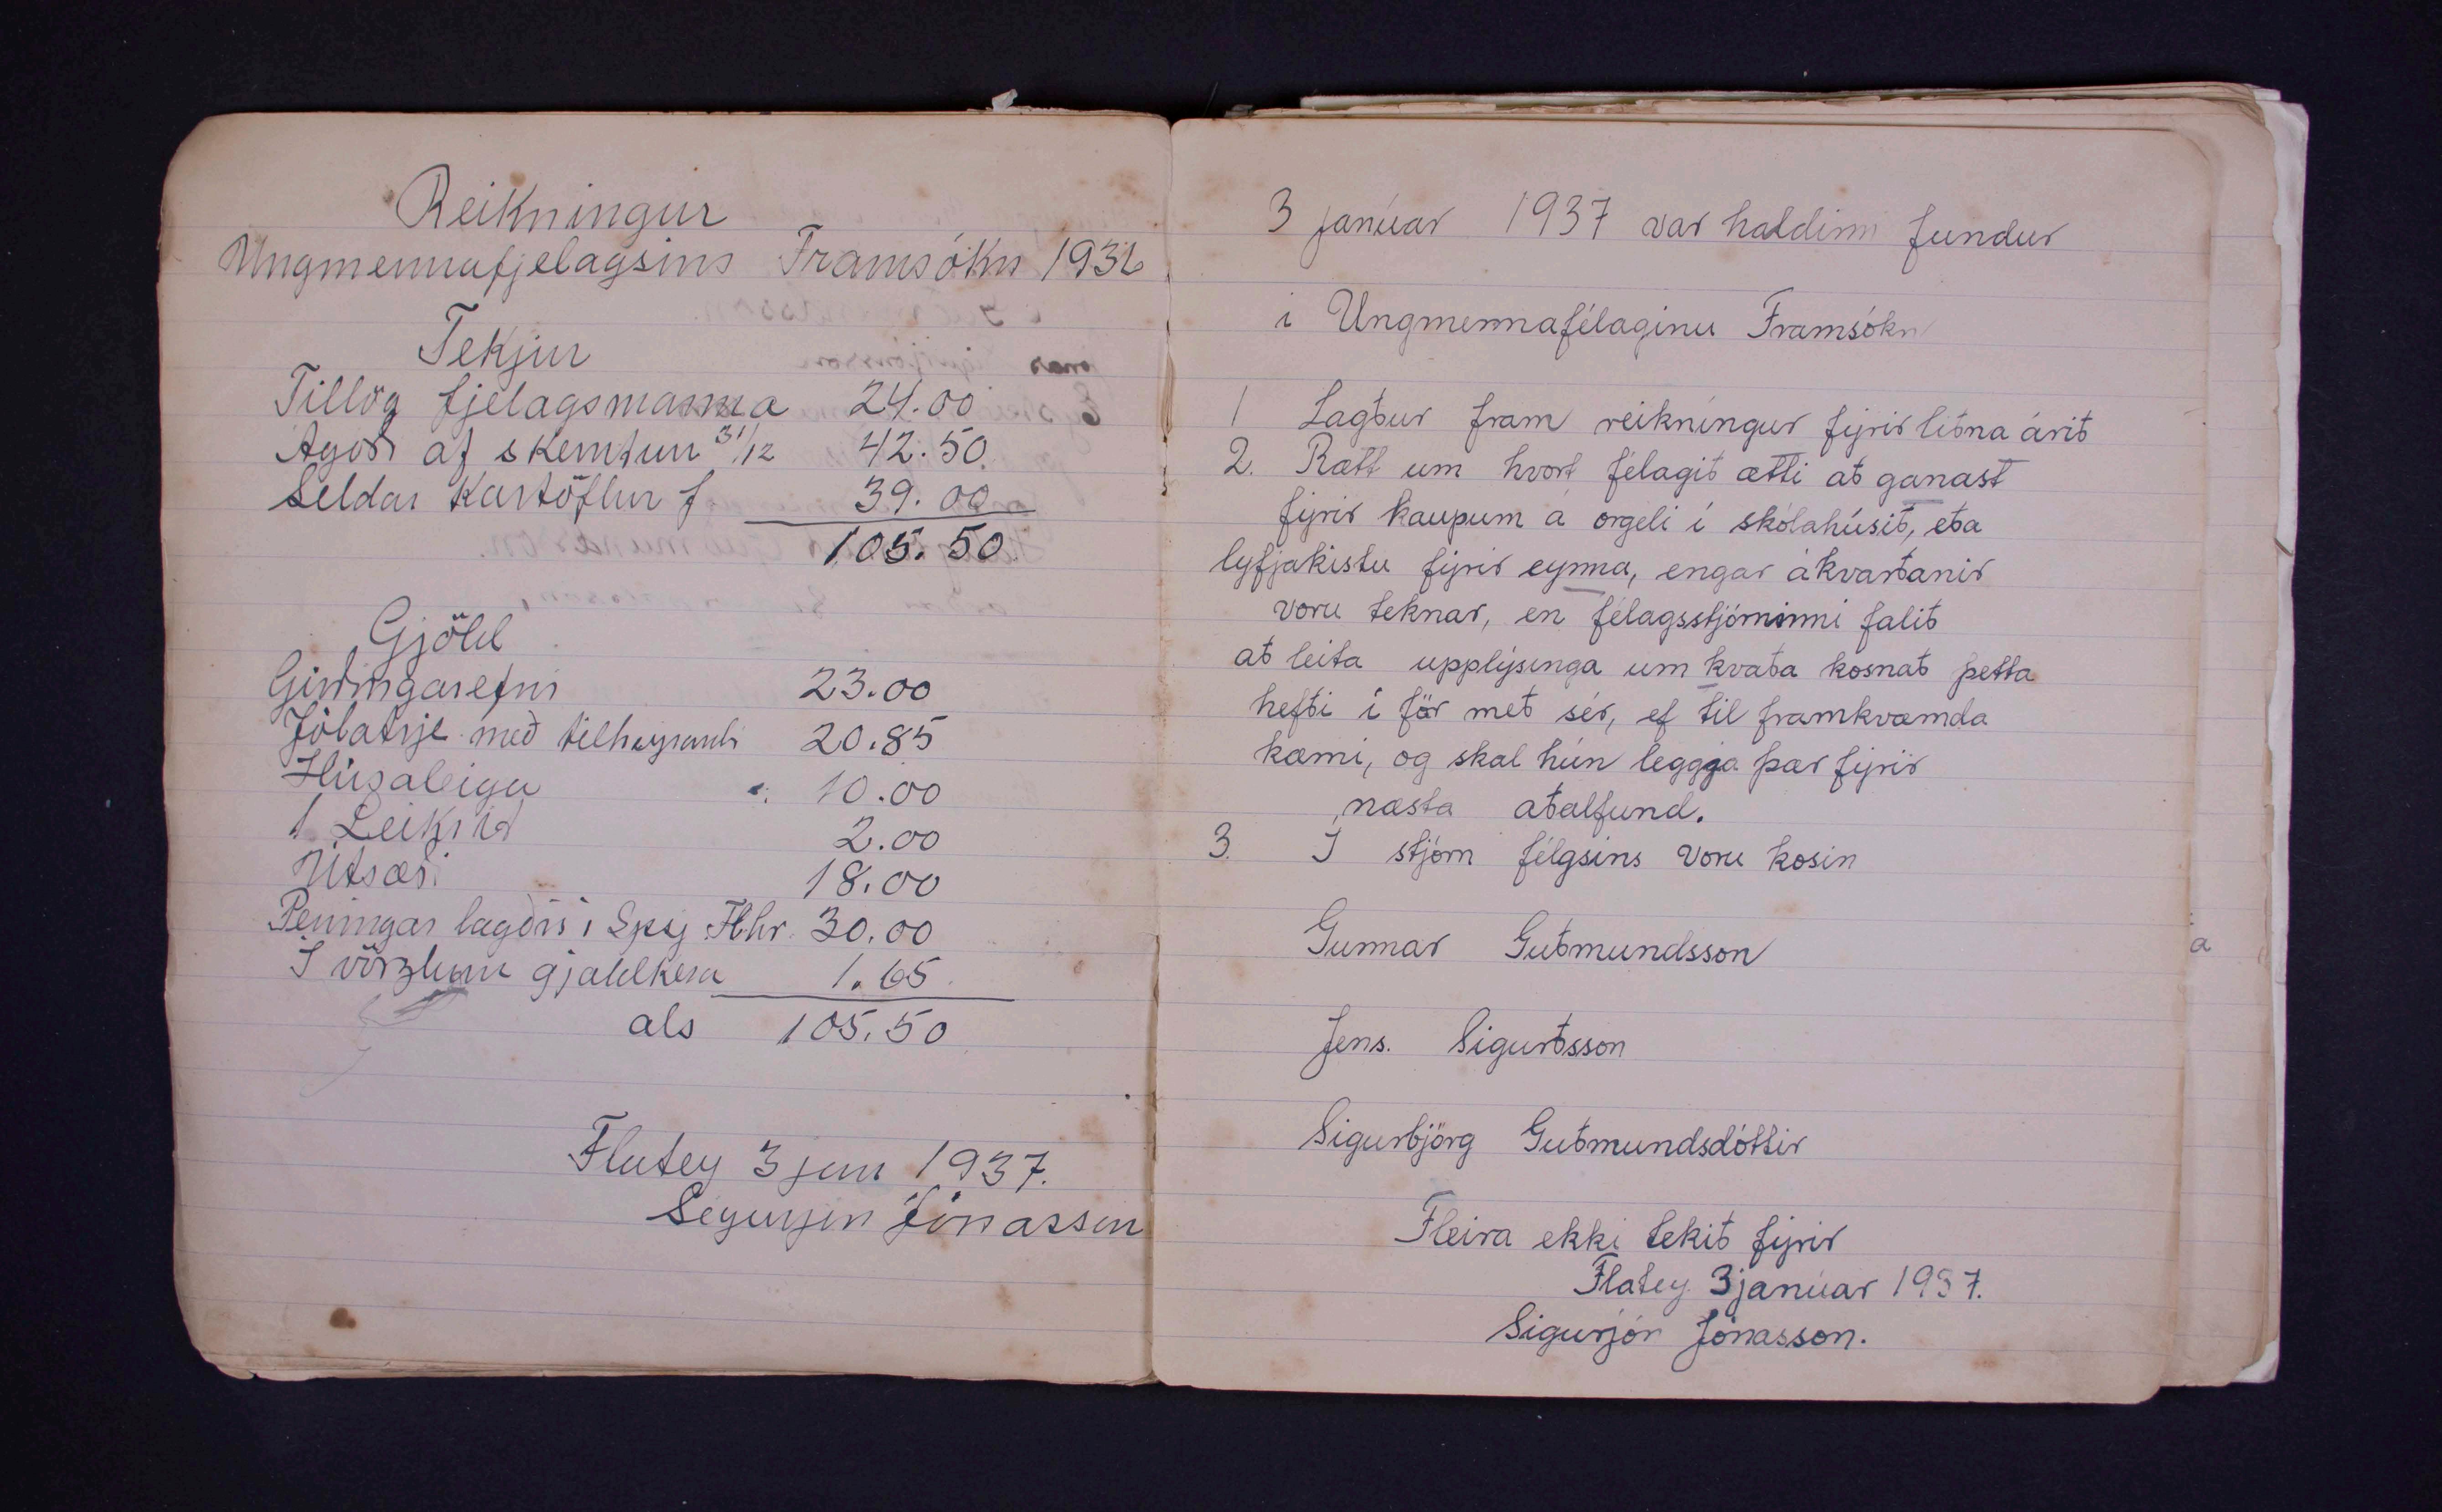 Reikningur
Ungmennafjelagsins Framsókn 1936
Tekjur
Tillög fjelagsmanna 24.00
Ágóði af skemtun 31/12 42.50
Seldar Kartöflur f 39.00
105.50
Gjöld
Girðingarefni 23.00
Jólatrje með tilheyrandi 20.85
Húsaleiga 10.00
1 Leikrit 2.00
Útsæði 18.00
Peningar lagðir í Spsj. Fl.hr. 30.00
Í vörzlum gjaldkera 1.65
als 105.50
Flatey 3 jan 1937.
Sigurjón Jónasson
3 janúar 1937 var haldinn fundur
í Ungmennafélaginu Framsókn
1 Lagður fram reikningur fyrir liðna árið
2. Rætt um hvort félagið ætti að ganast
fyrir kaupum á orgeli í skólahúsið, eða
lyfjakistu fyrir eynna, engar ákvarðanir
voru teknar, en félagsstjórninni falið
að leita upplýsinga um kvaða kosnað þetta
hefði í för með sér, ef til framkvæmda
kæmi, og skal hún leggja þær fyrir
næsta aðalfund.
3. I stjórn félgsins voru kosin
Gunnar Guðmundsson
Jens. Sigurðsson
Sigurbjörg Guðmundsdóttir
Fleira ekki tekið fyrir
Flatey 3 janúar 1937.
Sigurjón Jónasson.
a